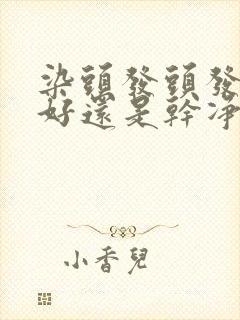 染頭發頭發
好還是幹凈
小香兒